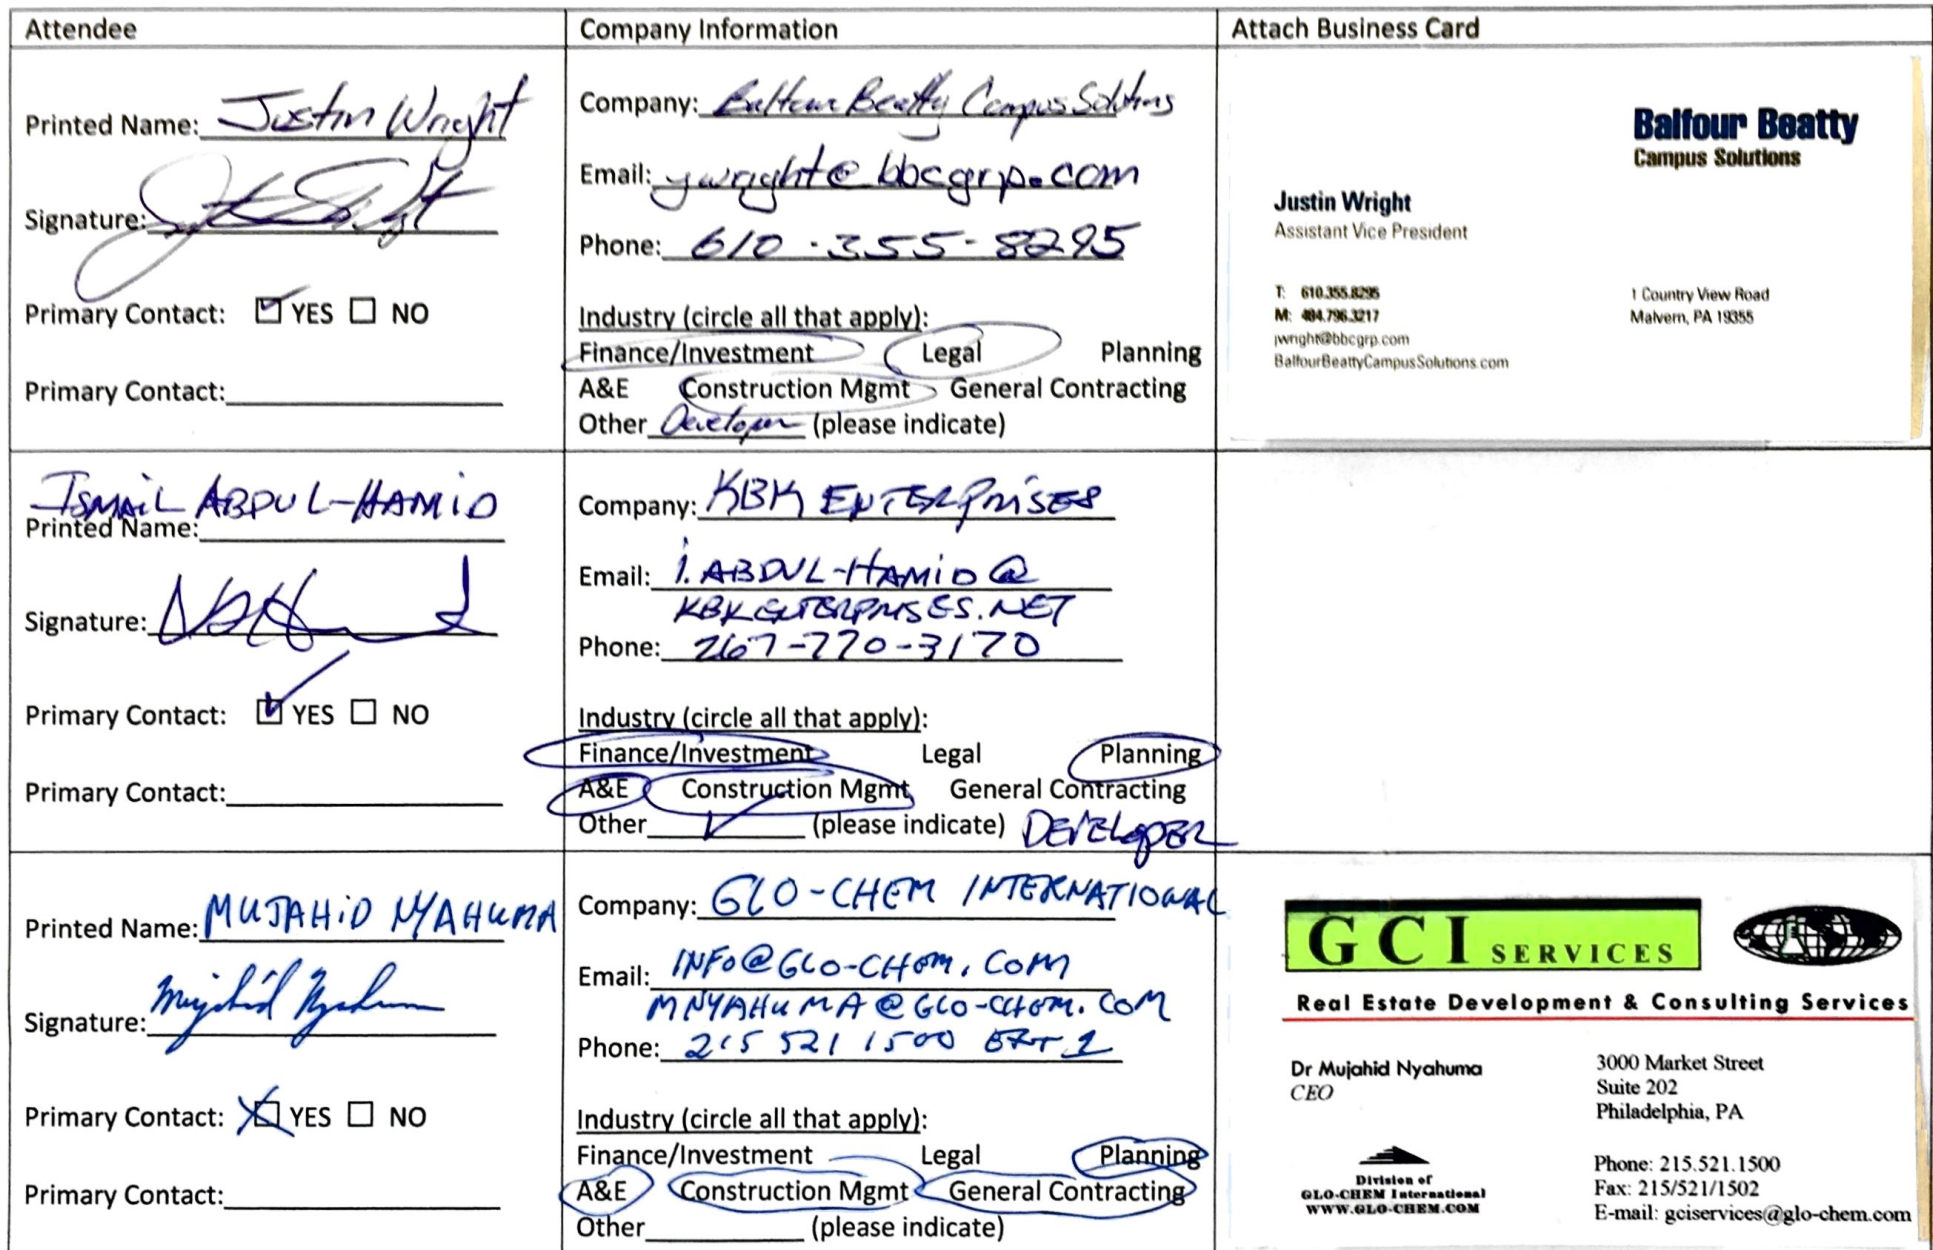 Attendee
Company Information
Attach Business Card
Printed Name: Justin Wright
Signature:
Primary Contact: YES NO
Primary Contact:
Company: Balfour Beatty Campus Solutions
Email: jwright@bbcgrp.com
Phone: 610-355-8295
Industry (circle all that apply):
Finance/Investment Legal Planning
A&E Construction Mgmt General Contracting
Other Developer (please indicate)
Balfour Beatty
Campus Solutions
Justin Wright
Assistant Vice President
T: 610.355.8295
M: 484.796.3217
jwright@bbcgrp.com
BalfourBeattyCampusSolutions.com
1 Country View Road
Malvern, PA 19355
ISMAIL ABDUL-HAMID
Printed Name:
Signature:
Primary Contact: YES NO
Primary Contact:
Company: KBK ENTERPRISES
Email: i.ABDUL-HAMID@
KBKENTERPRISES.NET
Phone: 267-770-3170
Industry (circle all that apply):
Finance/Investment Legal Planning
A&E Construction Mgmt General Contracting
Other (please indicate) DEVELOPER
Printed Name: MUJAHID NYAHUMA
Signature: Mujahid Nyahuma
Primary Contact: YES NO
Primary Contact:
Company: GLO-CHEM INTERNATIONAL
Email: INFO@GLO-CHEM.COM
MNYAHUMA@GLO-CHEM.COM
Phone: 215 521 1500 EXT 1
Industry (circle all that apply):
Finance/Investment Legal Planning
A&E Construction Mgmt General Contracting
Other (please indicate)
GCI SERVICES
Real Estate Development & Consulting Services
Dr Mujahid Nyahuma
CEO
3000 Market Street
Suite 202
Philadelphia, PA
Division of
GLO-CHEM International
WWW.GLO-CHEM.COM
Phone: 215.521.1500
Fax: 215/521/1502
E-mail: gciservices@glo-chem.com